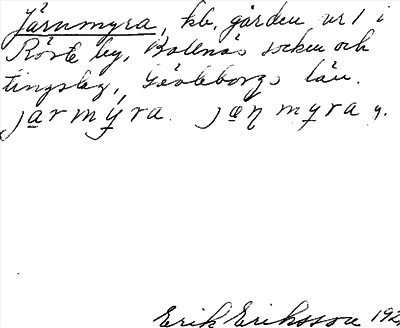 Järnmyra, kb. gården nr 1 i
Röste by, Bollnäs socken och
tingslag, Gävleborgs län.
jarmýra. jæηmyra y.
Erik Eriksson 192